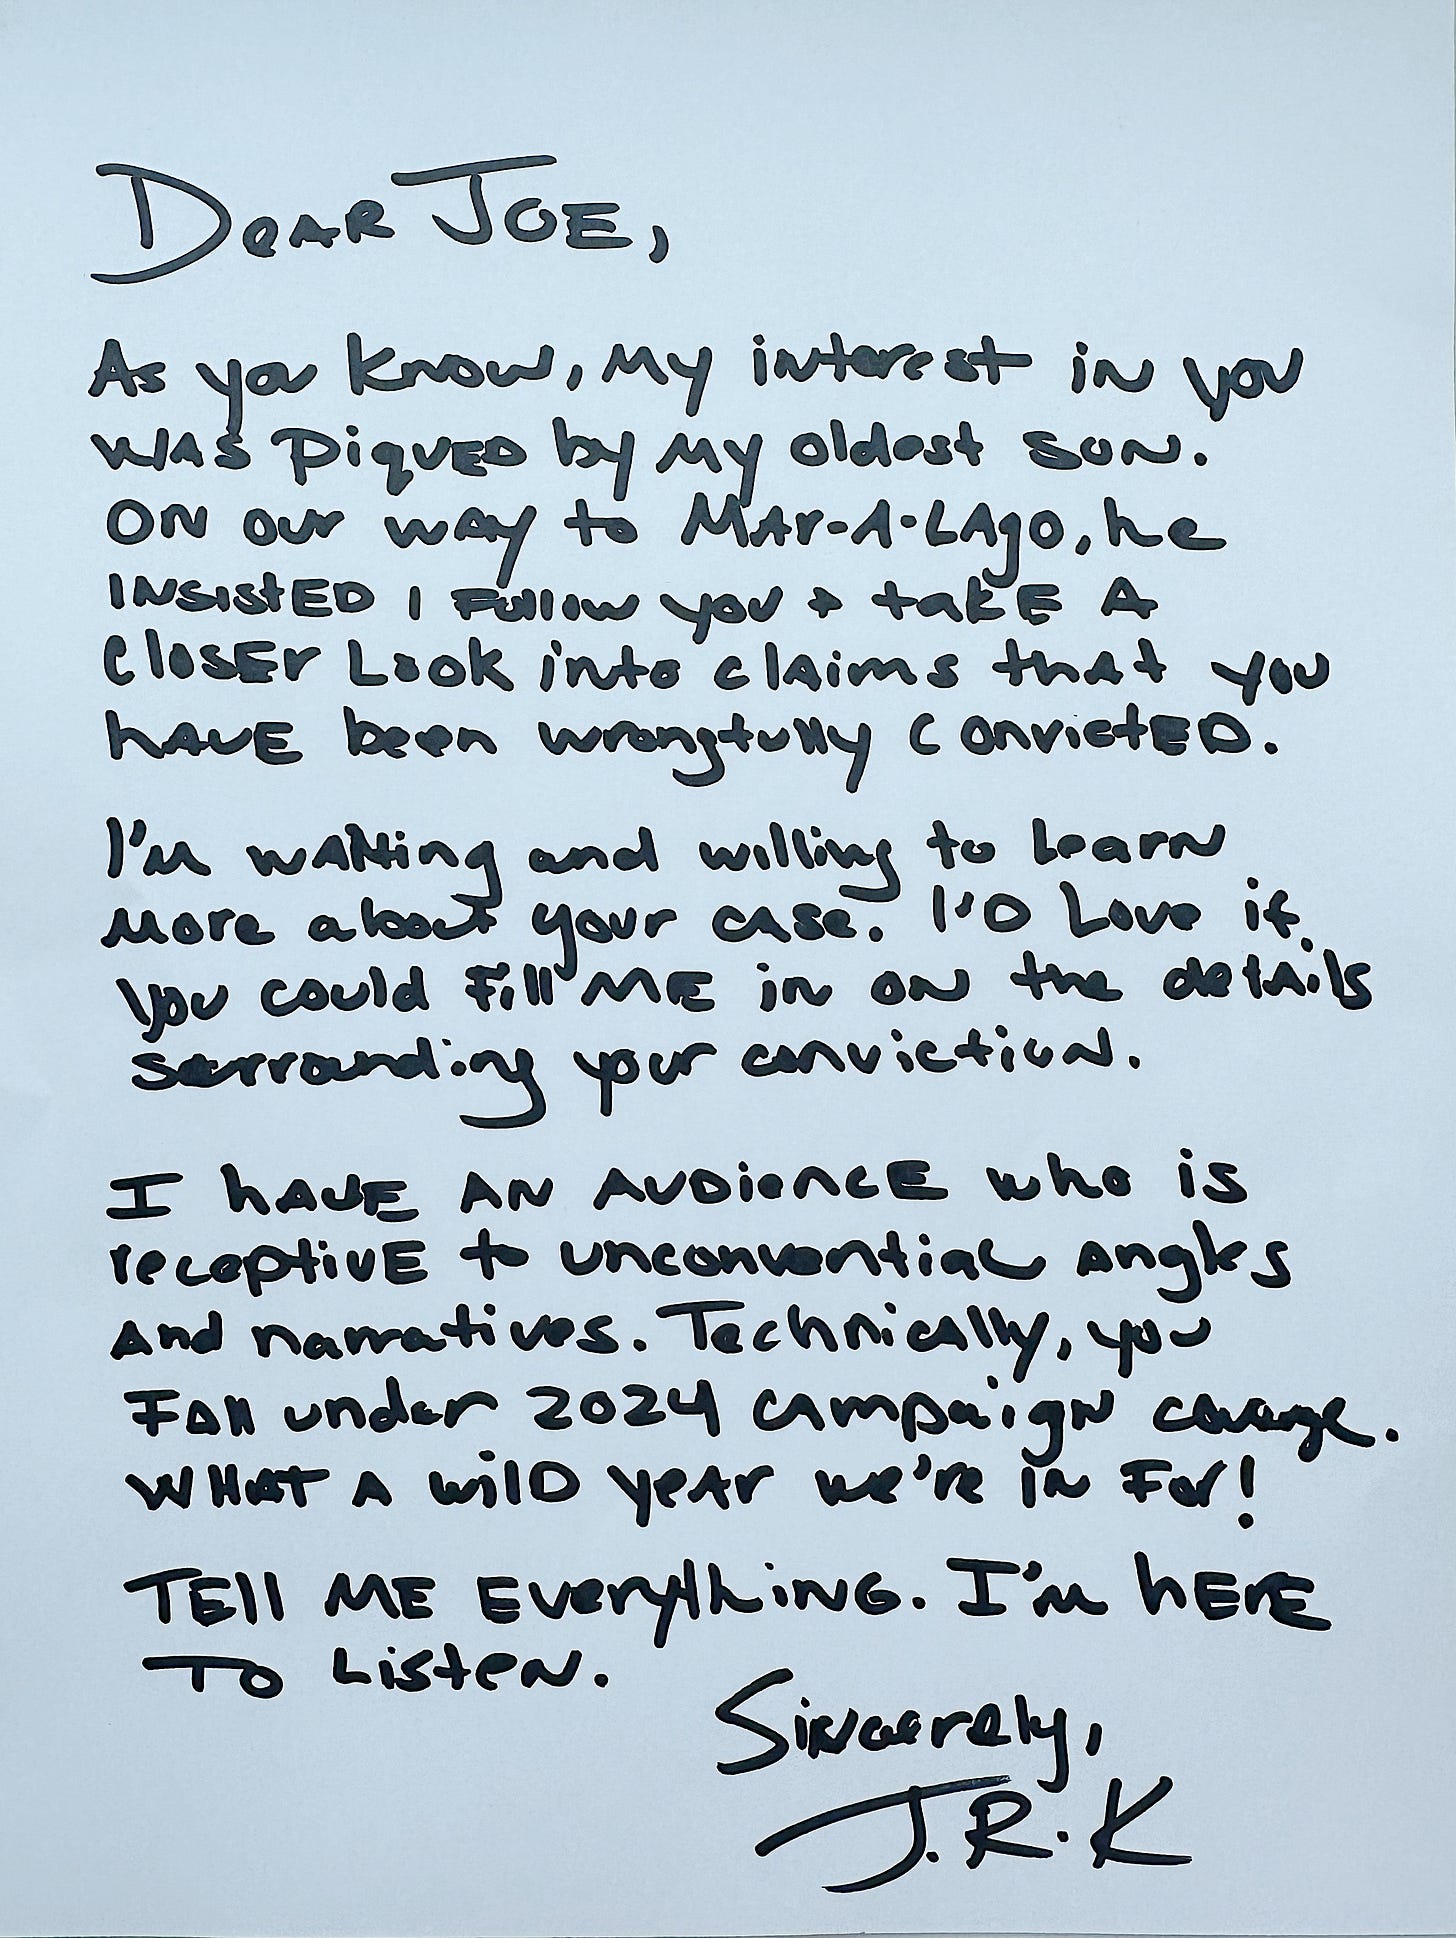 Dear Joe,
As you know, my interest in you
was piqued by my oldest son.
On our way to Mar-A-Lago, he
insisted I follow you + take a
closer look into claims that you
have been wrongfully convicted.
I'm waiting and willing to learn
more about your case. I'd love if
you could fill me in on the details
surrounding your conviction.
I have an audience who is
receptive to unconventional angles
and narratives. Technically, you
fall under 2024 campaign coverage.
What a wild year we're in for!
Tell me everything. I'm here
to listen.
Sincerely,
J.R.K